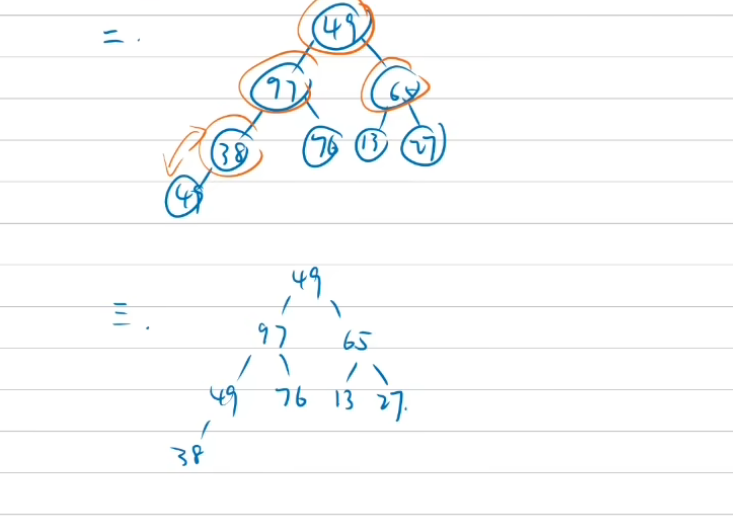 二.
49
97 65
38 76 13 27
49
三.
49
97 65
49 76 13 27.
38